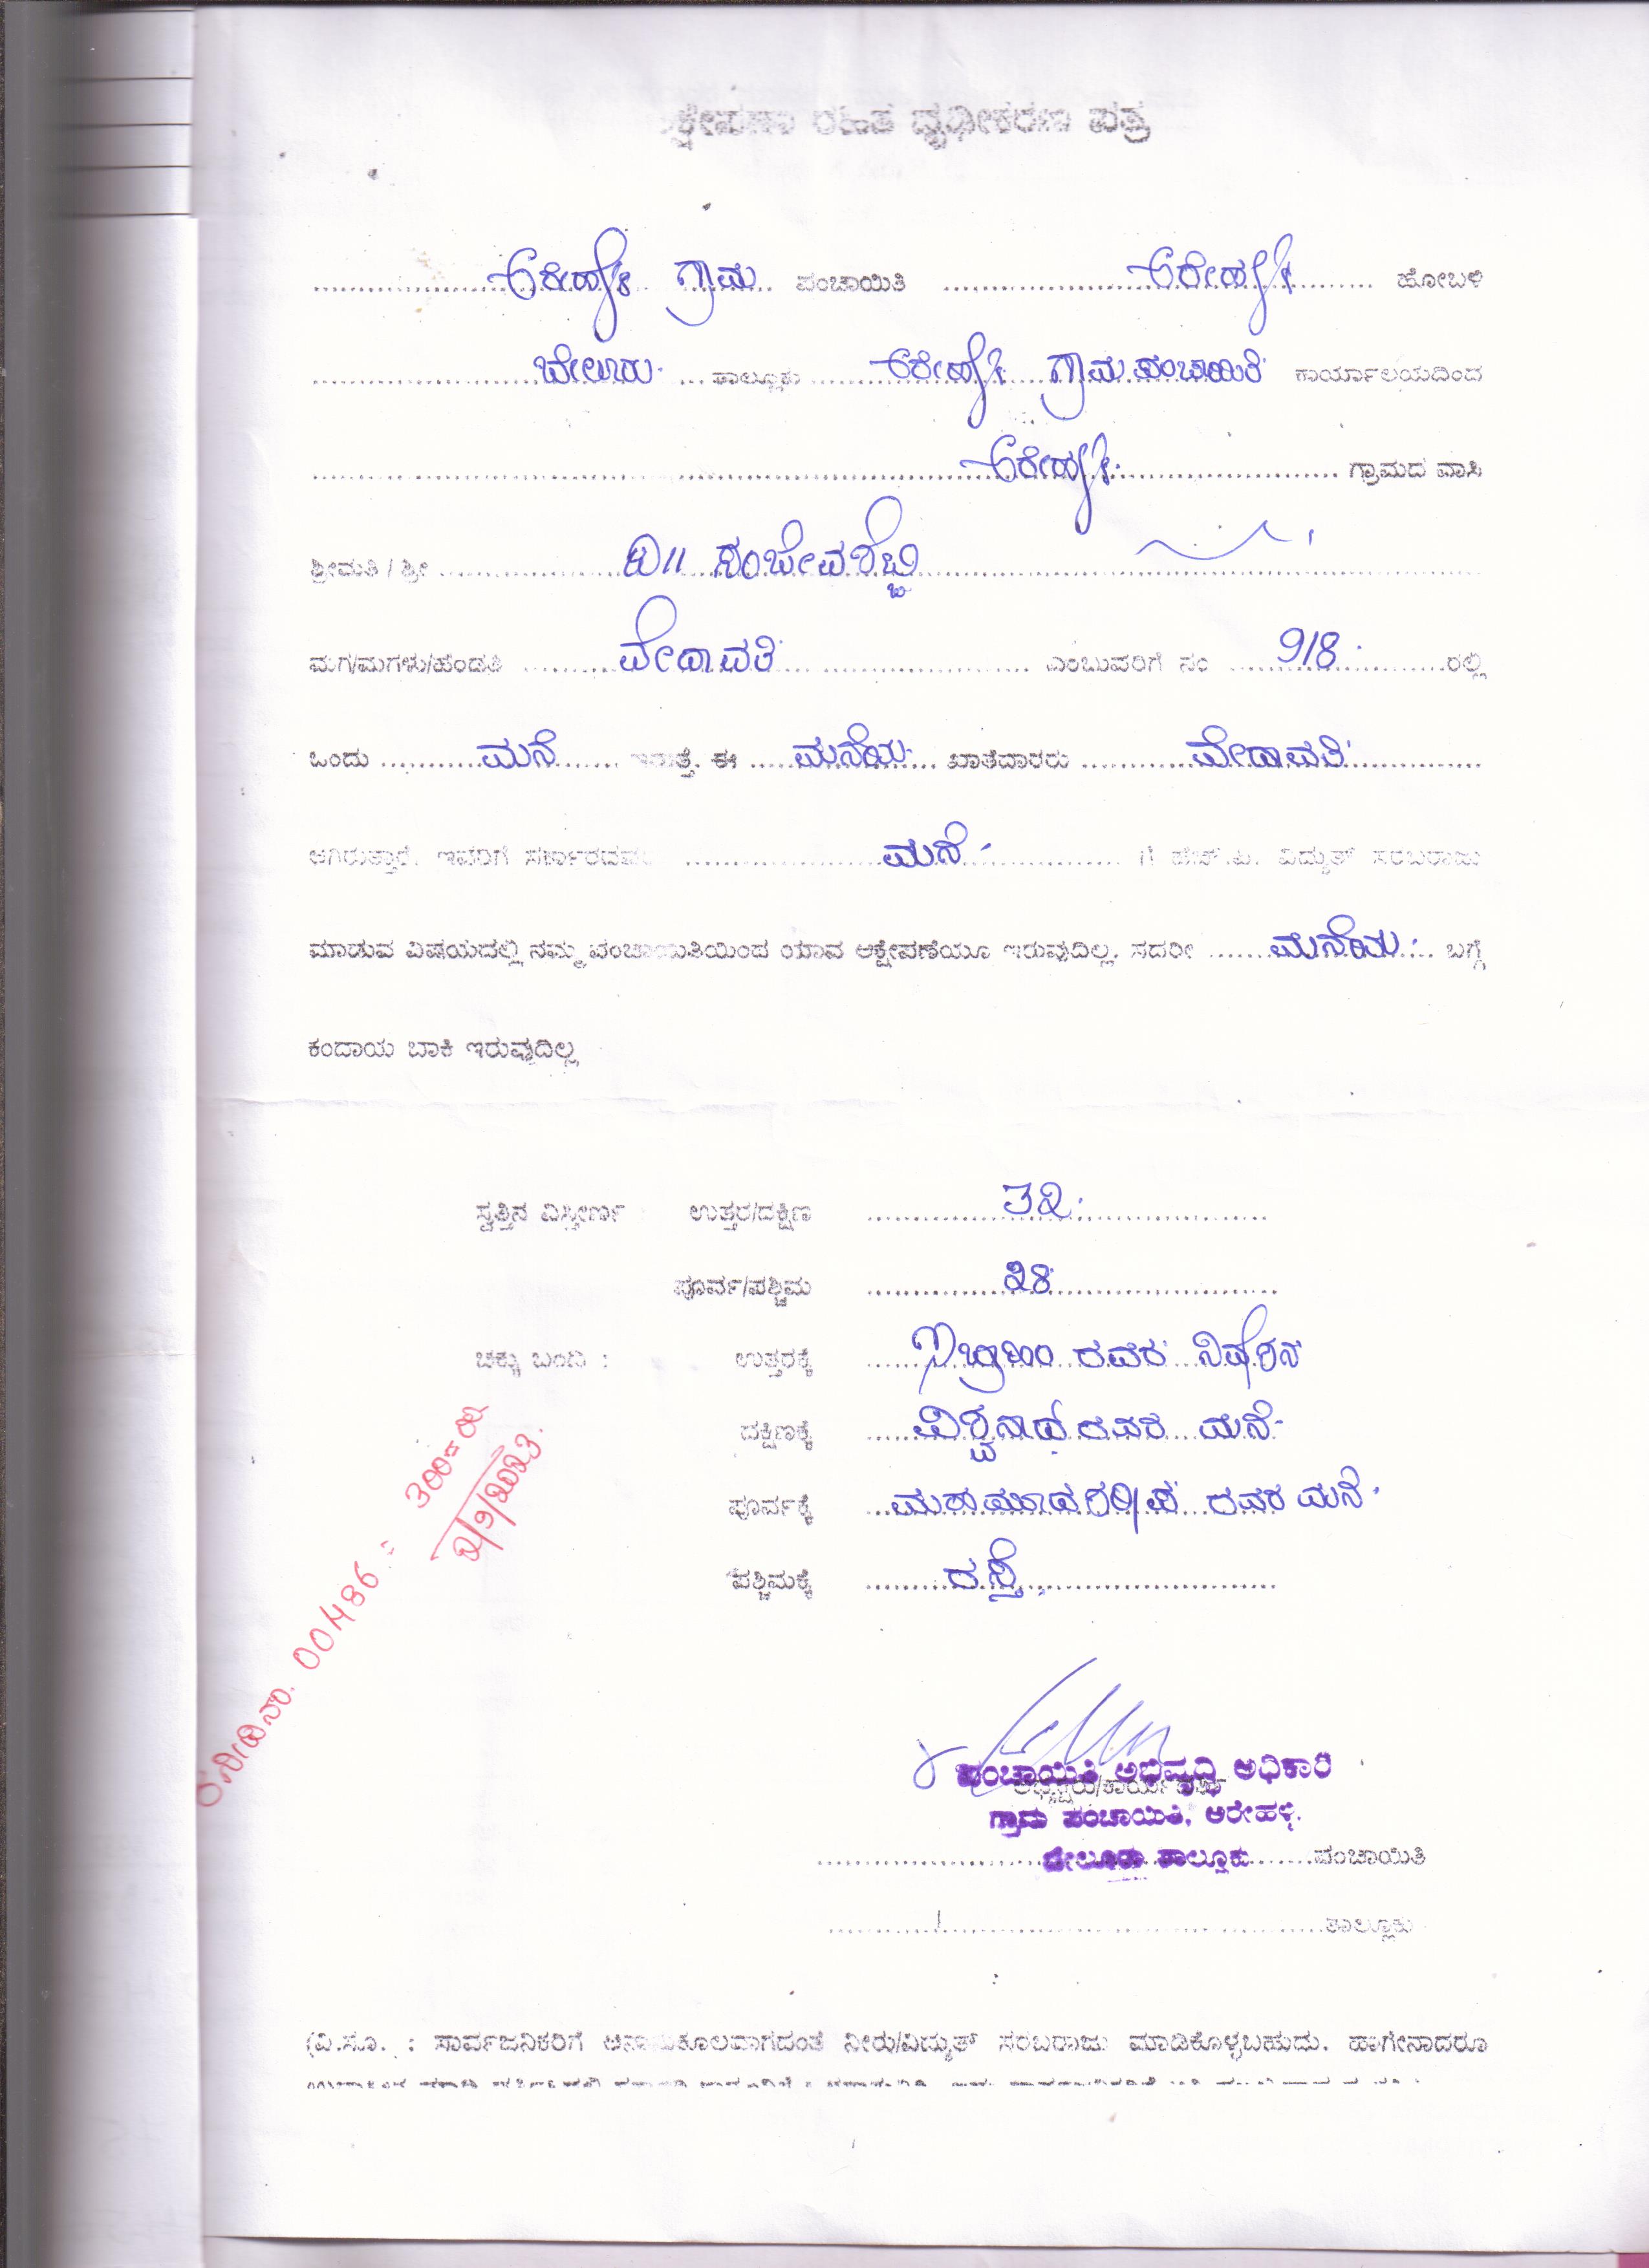 ಕ್ಷೇಪಣಾ ರಹಿತ ದೃಢೀಕರಣ ಪತ್ರ
ಅರೇಹಳ್ಳಿ ಗ್ರಾಮ ಪಂಚಾಯಿತಿ ಅರೇಹಳ್ಳಿ ಹೋಬಳಿ
ಬೇಲೂರು ತಾಲ್ಲೂಕು ಅರೇಹಳ್ಳಿ ಗ್ರಾಮ ಪಂಚಾಯಿತಿ ಕಾರ್ಯಾಲಯದಿಂದ
ಅರೇಹಳ್ಳಿ ಗ್ರಾಮದ ವಾಸಿ
ಶ್ರೀಮತಿ / ಶ್ರೀ
ಮಗ/ಮಗಳು/ಹೆಂಡತಿ ವೇದಾವತಿ ಎಂಬುವರಿಗೆ ನಂ 918 ರಲ್ಲಿ
ಒಂದು ಮನೆ ಇರುತ್ತೆ. ಈ ಮನೆಯ ಖಾತೆದಾರರು ವೇದಾವತಿ
ಆಗಿರುತ್ತಾರೆ. ಇವರಿಗೆ ಮನೆ ಗೆ ವಿದ್ಯುತ್ ಸರಬರಾಜು
ಮಾಡುವ ವಿಷಯದಲ್ಲಿ ನಮ್ಮ ಪಂಚಾಯಿತಿಯಿಂದ ಯಾವ ಆಕ್ಷೇಪಣೆಯೂ ಇರುವುದಿಲ್ಲ. ಸದರೀ ಮನೆಯ ಬಗ್ಗೆ
ಕಂದಾಯ ಬಾಕಿ ಇರುವುದಿಲ್ಲ
ಸ್ವತ್ತಿನ ವಿಸ್ತೀರ್ಣ ಉತ್ತರ/ದಕ್ಷಿಣ 32
ಪೂರ್ವ/ಪಶ್ಚಿಮ 28
ಚಕ್ಕು ಬಂದಿ : ಉತ್ತರಕ್ಕೆ ರವರ ನಿವೇಶನ
ದಕ್ಷಿಣಕ್ಕೆ ವಿಶ್ವನಾಥ್ ರವರ ಮನೆ
ಪೂರ್ವಕ್ಕೆ ರವರ ಮನೆ
ಪಶ್ಚಿಮಕ್ಕೆ ರಸ್ತೆ
ರಶೀದಿ ನಂ. 00486 = 300=00
2/9/2023
ಪಂಚಾಯಿತಿ ಅಭಿವೃದ್ಧಿ ಅಧಿಕಾರಿ
ಅಧ್ಯಕ್ಷರು/ಕಾರ್ಯದರ್ಶಿ
ಗ್ರಾಮ ಪಂಚಾಯಿತಿ, ಅರೇಹಳ್ಳಿ.
ಬೇಲೂರು ತಾಲ್ಲೂಕು ಪಂಚಾಯಿತಿ
ತಾಲ್ಲೂಕು
(ವಿ.ಸೂ. : ಸಾರ್ವಜನಿಕರಿಗೆ ಅನಾನುಕೂಲವಾಗದಂತೆ ನೀರು/ವಿದ್ಯುತ್ ಸರಬರಾಜು ಮಾಡಿಕೊಳ್ಳಬಹುದು. ಹಾಗೇನಾದರೂ